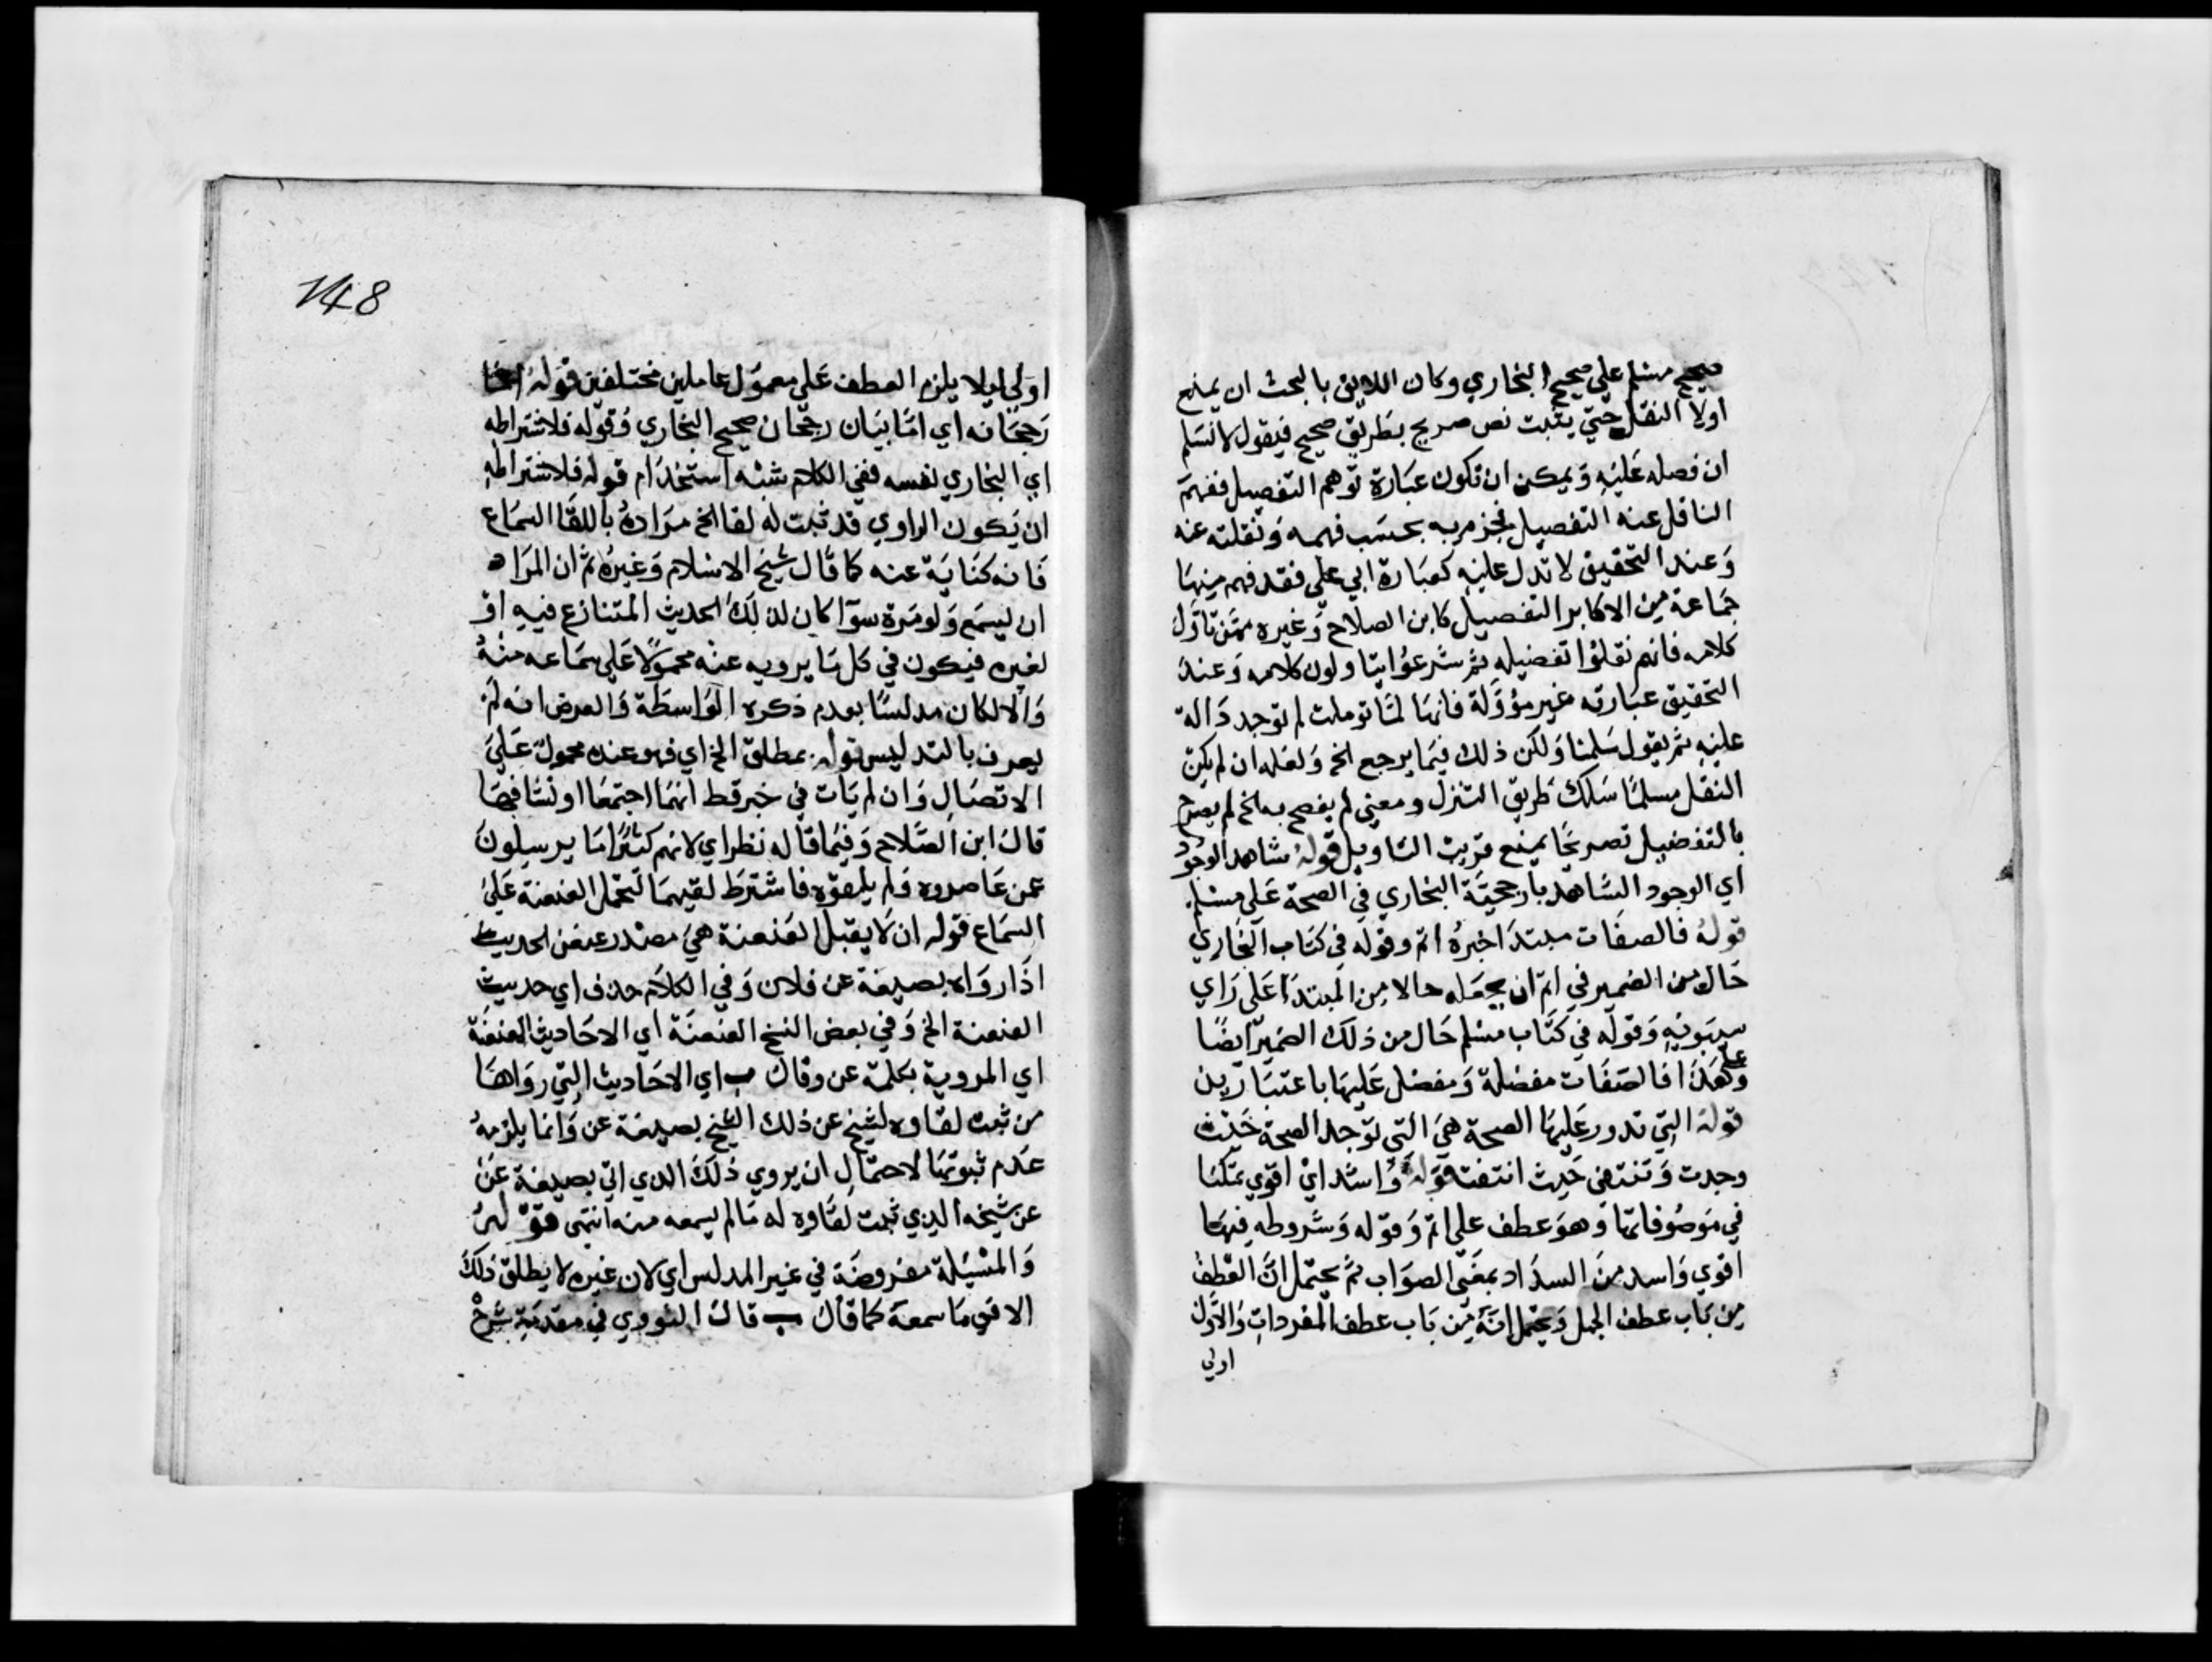 صحيح مسلم علي صحيح البخاري وكان اللايق بالبحث ان يمنع
اولا النقل حتي يثبت نص صريح بطريق صحيح فيقول لا نسلم
ان فصله عليه ويمكن ان تكون عبارة توهم التفصيل ففهم
الناقل عنه التفصيل فجزم به بحسب فهمه ونقلته عنه
وعند التحقيق لا تدل عليه كعبارة ابي علي فقد فهم منها
جماعة من الاكابر التفصيل كابن الصلاح وغيره ممن تاول
كلامه فانهم نقلوا تفضيله ثم شرعوا يتاولون كلامه وعند
التحقيق عبارته غير مؤولة فانها لما توملت لم توجد دالة
عليه ثم يقول سلمنا ولكن ذلك فيما يرجع الخ ولعله ان لم يكن
النقل مسلما سلك طريق التنزل ومعني لم يفصح به الخ لم يصرح
بالتفضيل تصريحا يمنع قريب التاويل قوله شاهد الوجود
اي الوجود الشاهد بارجحية البخاري في الصحة علي مسلم
قوله فالصفات مبتدا خبره اتم وقوله في كتاب البخاري
حال من الضمير في اتم ان يجعله حالا من المبتدا علي راي
سيبويه وقوله في كتاب مسلم حال من ذلك الضمير ايضا
وعلي هذا فالصفات مفضلة ومفضل عليها باعتبارين
قوله التي تدور عليها الصحة هي التي توجد الصحة حيث
وجدت وتنتفي حيث انتفت قوله واشد اي اقوي تمكنا
في موصوفاتها وهو عطف علي اتم وقوله وشروطه فيها
اقوي واسد من السداد بمعني الصواب ثم يحتمل ان العطف
من باب عطف الجمل ويحتمل انه من باب عطف المفردات والاول
اولي
148
اولي ليلا يلزم العطف علي معمول عاملين مختلفين قوله اما
رجحانه اي اما بيان رجحان صحيح البخاري وقوله فلاشتراطه
اي البخاري نفسه ففي الكلام شبه استخدام قوله فلاشتراطه
ان يكون الراوي قد ثبت له لقا الخ مراده باللقا السماع
فانه كناية عنه كما قال شيخ الاسلام وغيره ثم ان المراد
ان يسمع ولو مرة سوآ كان لذلك الحديث المتنازع فيه او
لغيره فيكون في كل ما يرويه عنه محمولا علي سماعه منه
والا لكان مدلسا بعدم ذكره الواسطة والفرض انه لم
يعرف بالتدليس قوله بمطلق الخ اي فهو عنده محمول علي
الاتصال وان لم يات في خبر قط انهما اجتمعا او تشافها
قال ابن الصلاح وفيما قاله نظر اي لانهم كثيرا ما يرسلون
عمن عاصروه ولم يلقوه فاشترط لقيهما لتحمل العنعنة علي
السماع قوله ان لا يقبل العنعنة هي مصدر عنعن الحديث
اذا رواه بصيغة عن فلان وفي الكلام حذف اي حديث
العنعنة الخ وفي بعض النسخ العنعنة اي الاحاديث المعنعنة
اي المروية بكلمة عن وقال ب اي الاحاديث التي رواها
من ثبت لقاوه لشيخ عن ذلك الشيخ بصيغة عن وانما يلزمه
عدم ثبوتها لاحتمال ان يروي ذلك الذي اتي بصيغة عن
عن شيخه الذي ثبت لقاوه له ما لم يسمعه منه انتهي قوله
والمسيلة مفروضة في غير المدلس اي لان غيره لا يطلق ذلك
الا في ما سمعه كما قال ب قال النووي في مقدمة شرح